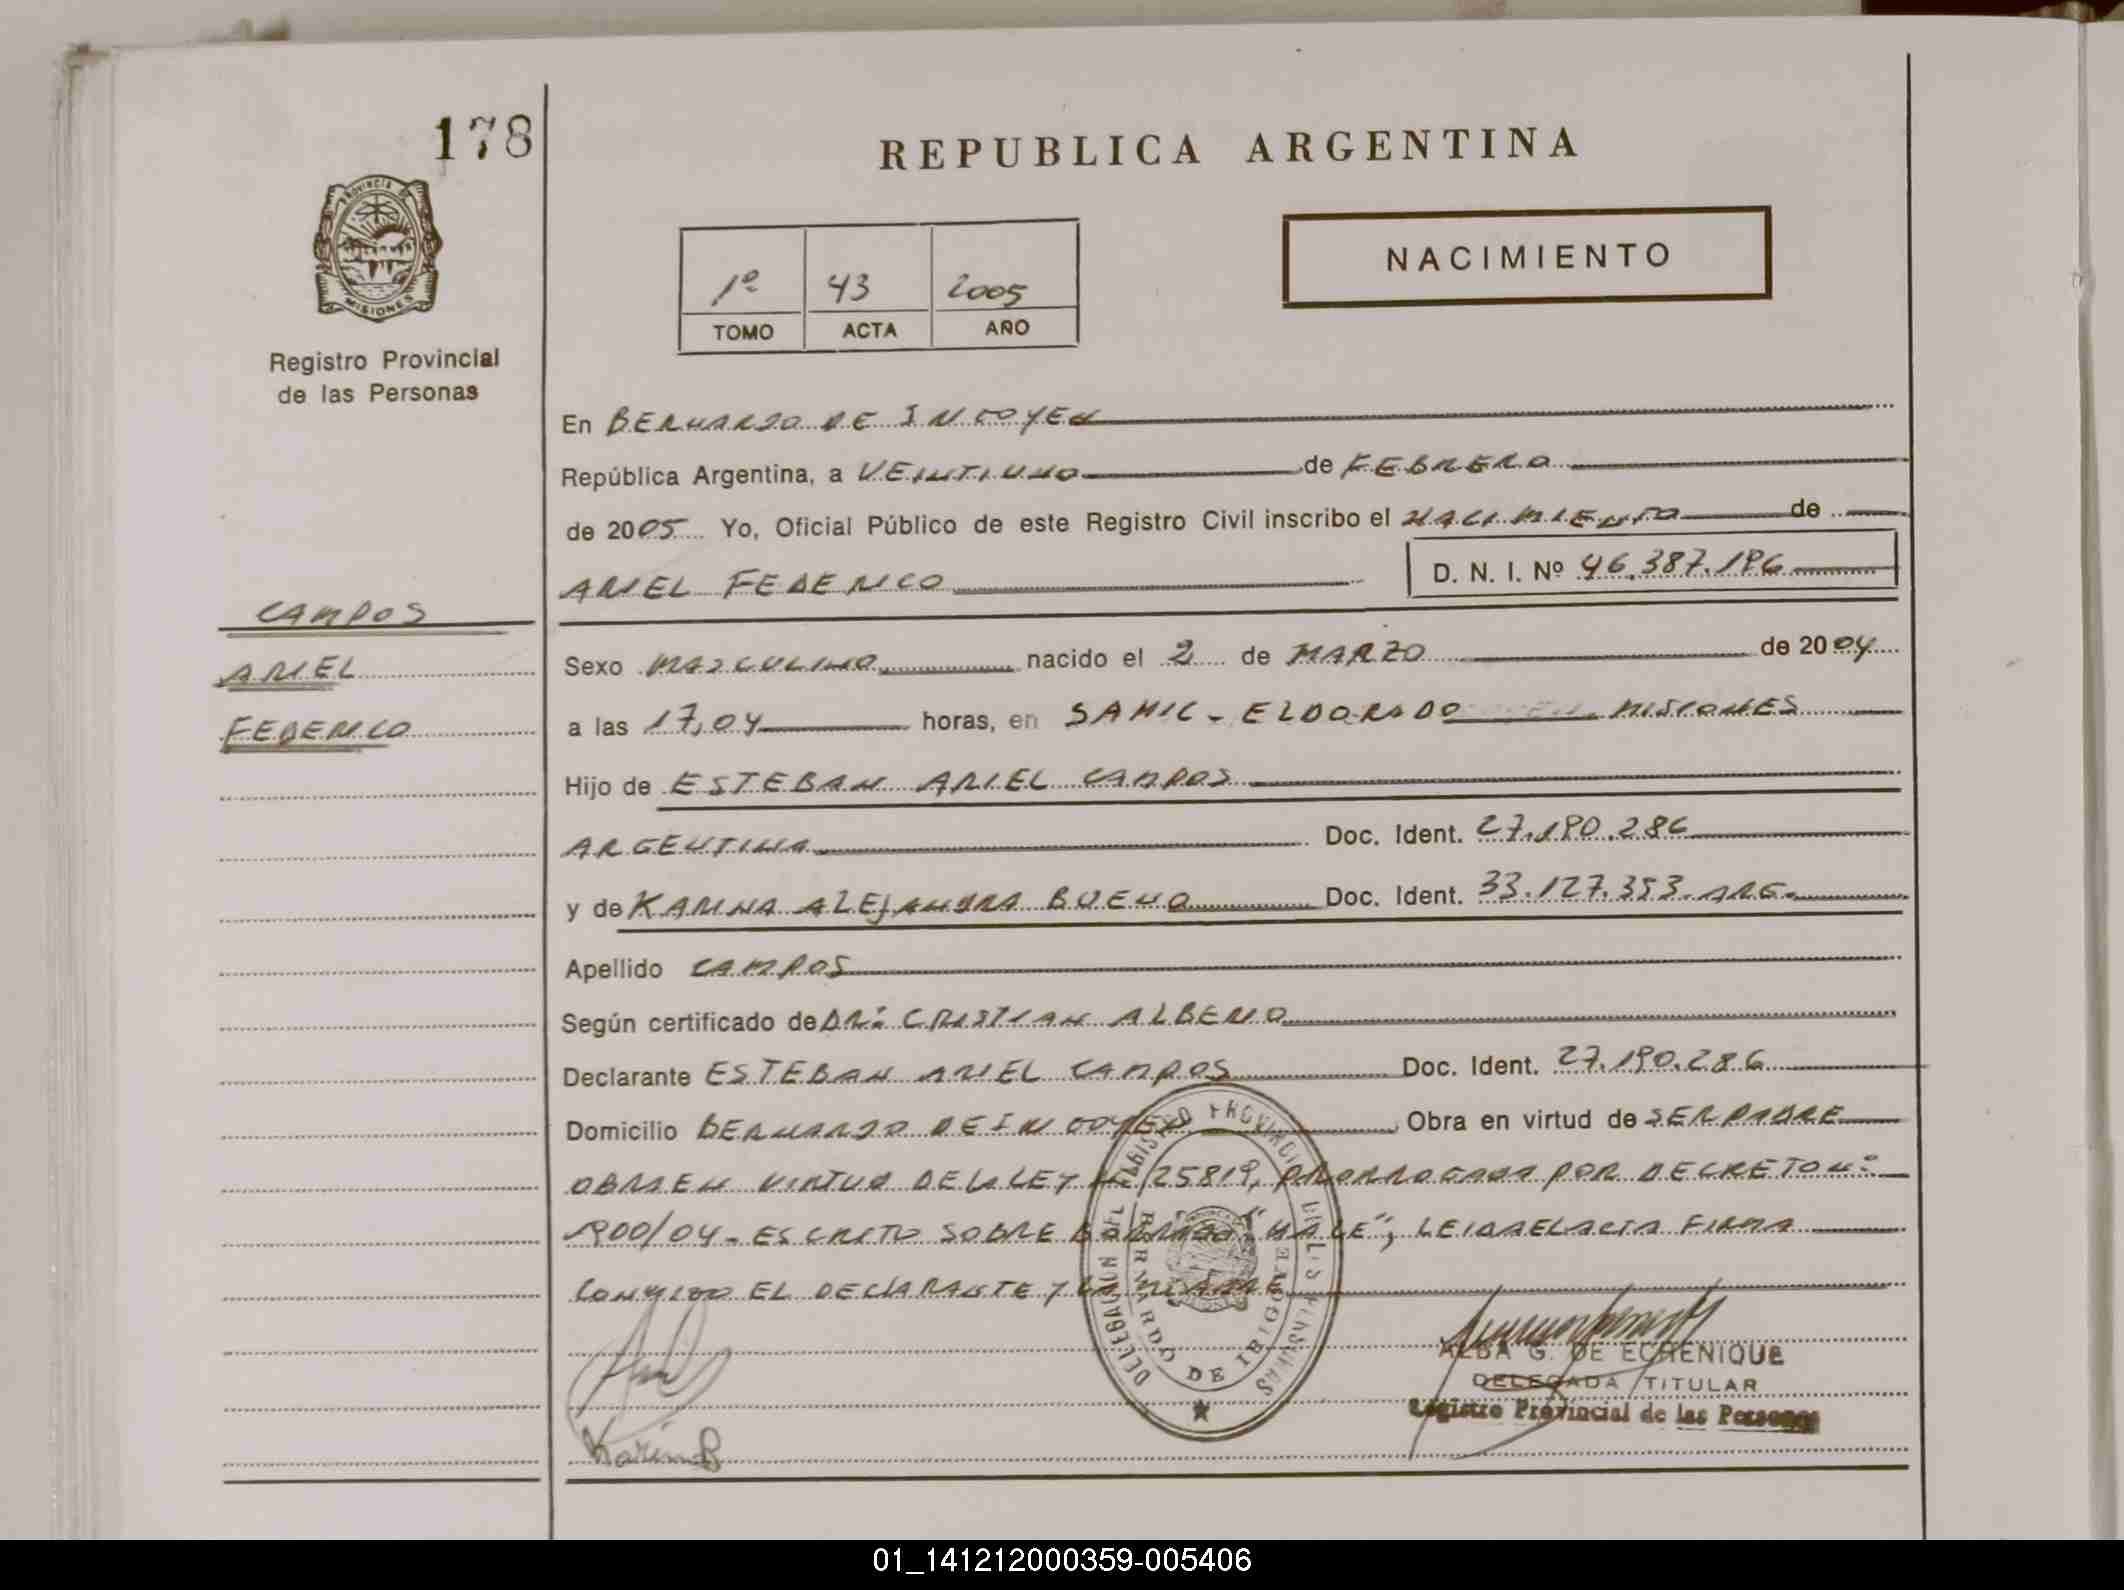 178
REPUBLICA ARGENTINA
PROVINCIA DE
MISIONES
Registro Provincial
de las Personas
1º 43 2005
TOMO ACTA AÑO
NACIMIENTO
En BERNARDO DE IRIGOYEN
República Argentina, a VEINTIUNO de FEBRERO
de 2005 Yo, Oficial Público de este Registro Civil inscribo el NACIMIENTO de
ARIEL FEDERICO D. N. I. Nº 46.387.186
CAMPOS
ARIEL
FEDERICO
Sexo MASCULINO nacido el 2 de MARZO de 2004
a las 17,04 horas, en SAMIC - ELDORADO MISIONES
Hijo de ESTEBAN ARIEL CAMPOS
ARGENTINA Doc. Ident. 27.190.286
y de KARINA ALEJANDRA BUENO Doc. Ident. 33.127.353 - ARG.
Apellido CAMPOS
Según certificado de DR: CRISTIAN ALBERIO
Declarante ESTEBAN ARIEL CAMPOS Doc. Ident. 27.190.286
Domicilio BERNARDO DE IRIGOYEN Obra en virtud de SER PADRE
OBRA EN VIRTUD DE LA LEY Nº 25819, PRORROGADA POR DECRETO Nº
1900/04 - ESCRITO SOBRE BORRADO: "HACE"; LEIDA EL ACTA FIRMA
CONMIGO EL DECLARANTE Y LA MADRE
DELEGACION DEL REGISTRO PROVINCIAL DE LAS PERSONAS
BERNARDO DE IRIGOYEN
Karina B
ALBA G. DE ECHENIQUE
DELEGADA TITULAR
Registro Provincial de las Personas
01_141212000359-005406